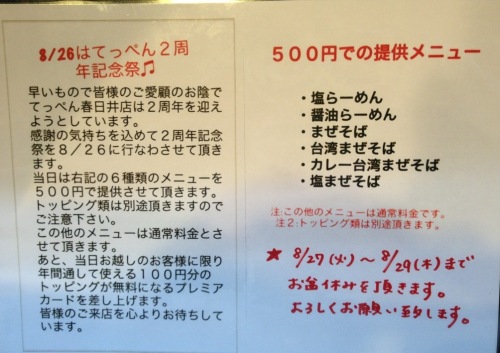 8/26はてっぺん２周
年記念祭♫
早いもので皆様のご愛顧のお陰で
てっぺん春日井店は２周年を迎え
ようとしています。
感謝の気持ちを込めて２周年記念
祭を８／２６に行なわさせて頂き
ます。
当日は右記の６種類のメニューを
５００円で提供させて頂きます。
トッピング類は別途頂きますので
ご注意下さい。
この他のメニューは通常料金とさ
せて頂きます。
あと、当日お越しのお客様に限り
年間通して使える１００円分の
トッピングが無料になるプレミア
カードを差し上げます。
皆様のご来店を心よりお待ちして
います。
５００円での提供メニュー
・塩らーめん
・醤油らーめん
・まぜそば
・台湾まぜそば
・カレー台湾まぜそば
・塩まぜそば
注:この他のメニューは通常料金です。
注２:トッピング類は別途頂きます。
★ 8/27(火)〜8/29(木)まで
お盆休みを頂きます。
よろしくお願い致します。